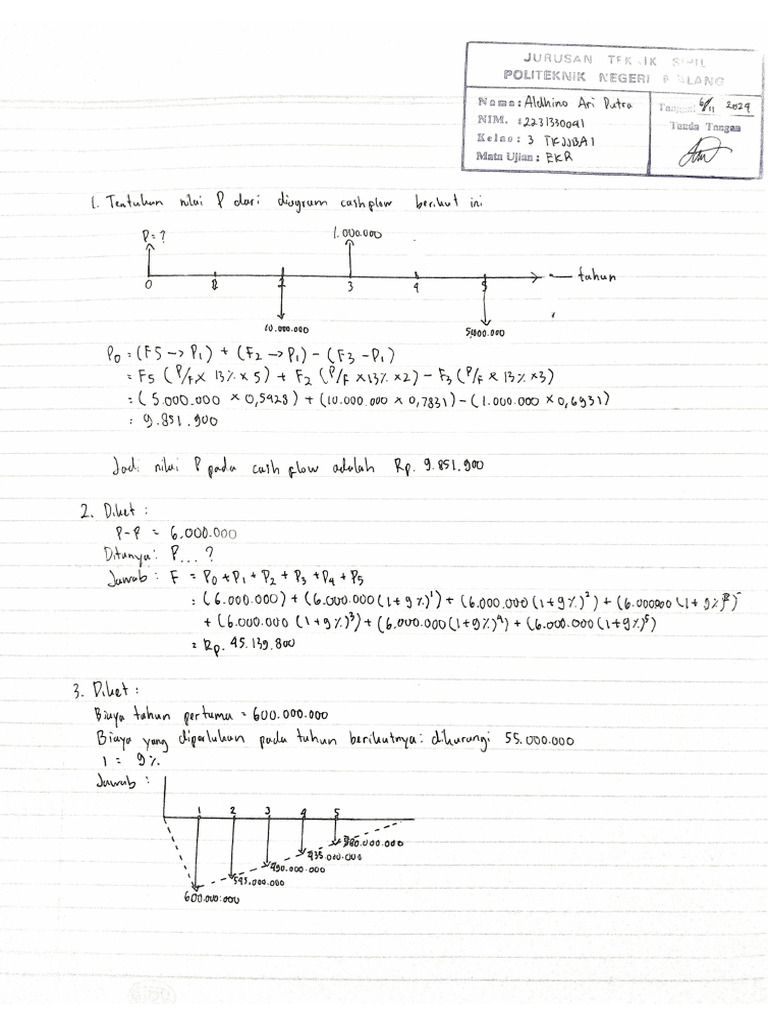 JURUSAN TEKNIK SIPIL
POLITEKNIK NEGERI MALANG
Nama : Aldhino Ari Putra
NIM. : 2231330041
Kelas : 3 TKJJBA1
Mata Ujian : EKR
Tanggal 6/11 2024
Tanda Tangan
1. Tentukan nilai P dari diagram cashflow berikut ini
P = ?
1.000.000
0 1 2 3 4 5 tahun
10.000.000
5.000.000
P0 = (F5 -> P1) + (F2 -> P1) - (F3 - P1)
= F5 (P/F x 13% x 5) + F2 (P/F x 13% x 2) - F3 (P/F x 13% x 3)
= (5.000.000 x 0,5428) + (10.000.000 x 0,7831) - (1.000.000 x 0,6931)
= 9.851.900
Jadi nilai P pada cash flow adalah Rp. 9.851.900
2. Diket :
P-P = 6.000.000
Ditanya : P... ?
Jawab : F = P0 + P1 + P2 + P3 + P4 + P5
= (6.000.000) + (6.000.000 (1+9%)¹) + (6.000.000 (1+9%)²) + (6.000000 (1+9%)
+ (6.000.000 (1+9%)³) + (6.000.000 (1+9%)⁴) + (6.000.000 (1+9%)⁵)
= Rp. 45.139.800
3. Diket :
Biaya tahun pertama = 600.000.000
Biaya yang diperlukan pada tahun berikutnya : dikurangi 55.000.000
I = 9%
Jawab :
1 2 3 4 5
380.000.000
435.000.000
490.000.000
545.000.000
600.000.000